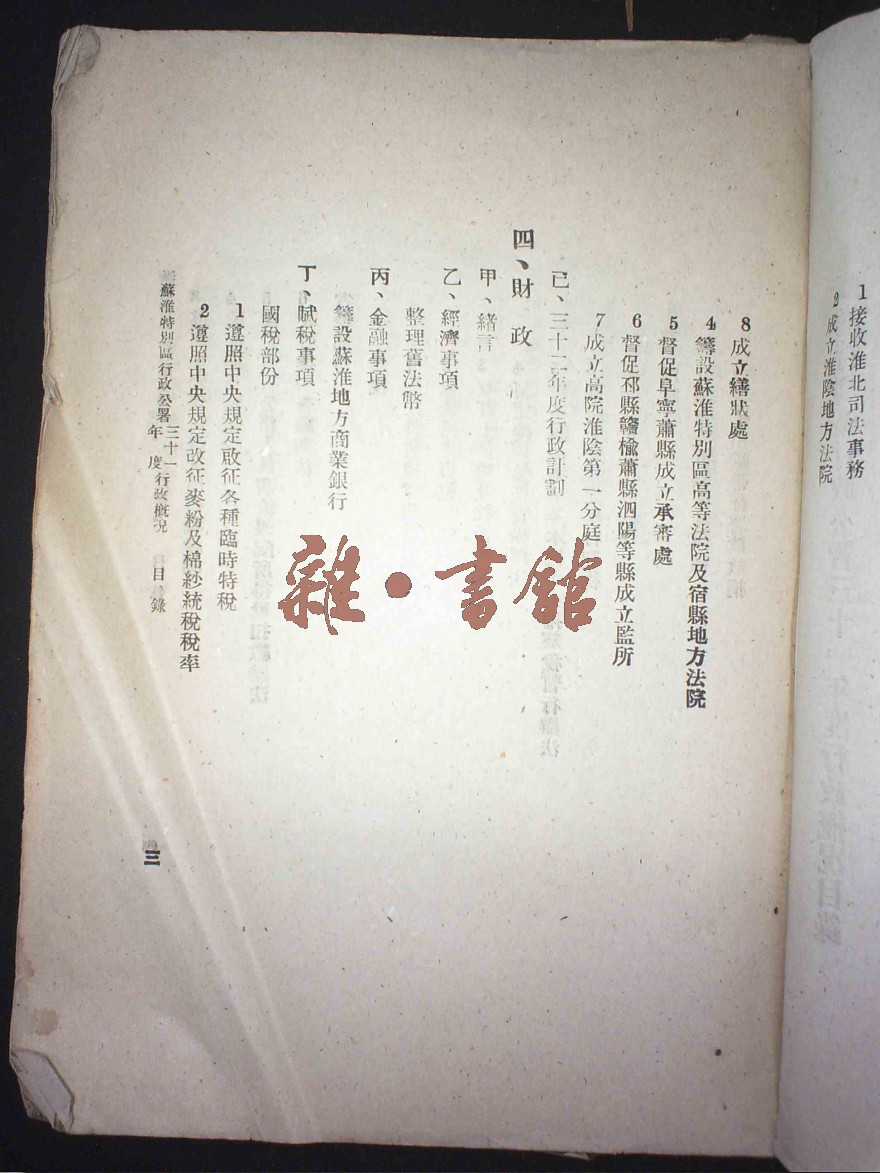 1接收淮北司法事務
2成立淮陰地方法院
8成立繕狀處
4籌設蘇淮特別區高等法院及宿縣地方法院
5督促阜寧蕭縣成立承審處
6督促邳縣贛榆蕭縣泗陽等縣成立監所
7成立高院淮陰第一分庭
己、三十二年度行政計劃
四、財政
甲、緒言
乙、經濟事項
整理舊法幣
丙、金融事項
籌設蘇淮地方商業銀行
丁、賦稅事項
國稅部份
1遵照中央規定啟征各種臨時特稅
2遵照中央規定改征麥粉及棉紗統稅稅率
蘇淮特別區行政公署三十一年度行政概況 目錄
三
雜·書館